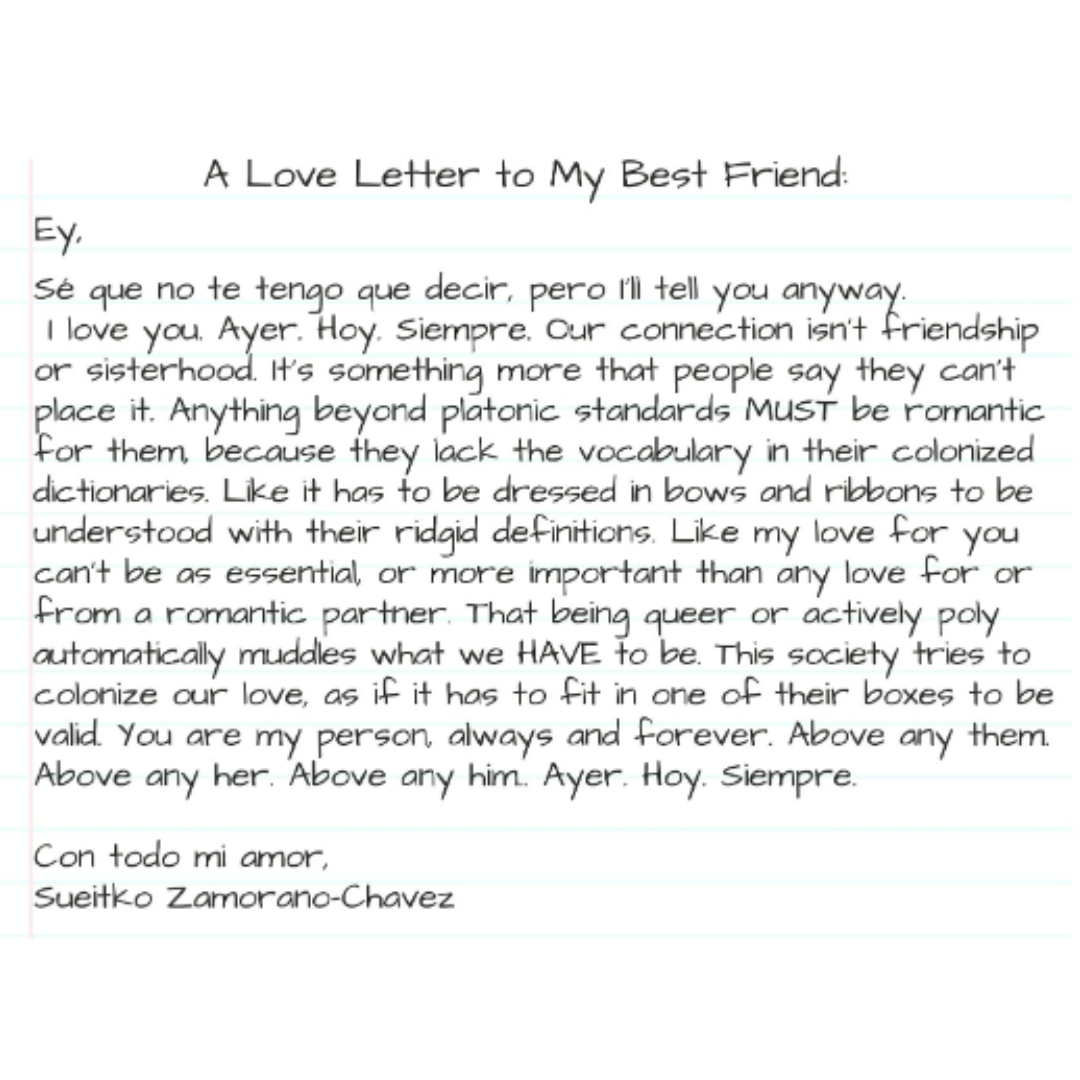 A Love Letter to My Best Friend:
Ey,
Sé que no te tengo que decir, pero I'll tell you anyway.
I love you. Ayer. Hoy. Siempre. Our connection isn't friendship
or sisterhood. It's something more that people say they can't
place it. Anything beyond platonic standards MUST be romantic
for them, because they lack the vocabulary in their colonized
dictionaries. Like it has to be dressed in bows and ribbons to be
understood with their ridgid definitions. Like my love for you
can't be as essential, or more important than any love for or
from a romantic partner. That being queer or actively poly
automatically muddles what we HAVE to be. This society tries to
colonize our love, as if it has to fit in one of their boxes to be
valid. You are my person, always and forever. Above any them.
Above any her. Above any him.. Ayer. Hoy. Siempre.
Con todo mi amor,
Sueitko Zamorano-Chavez